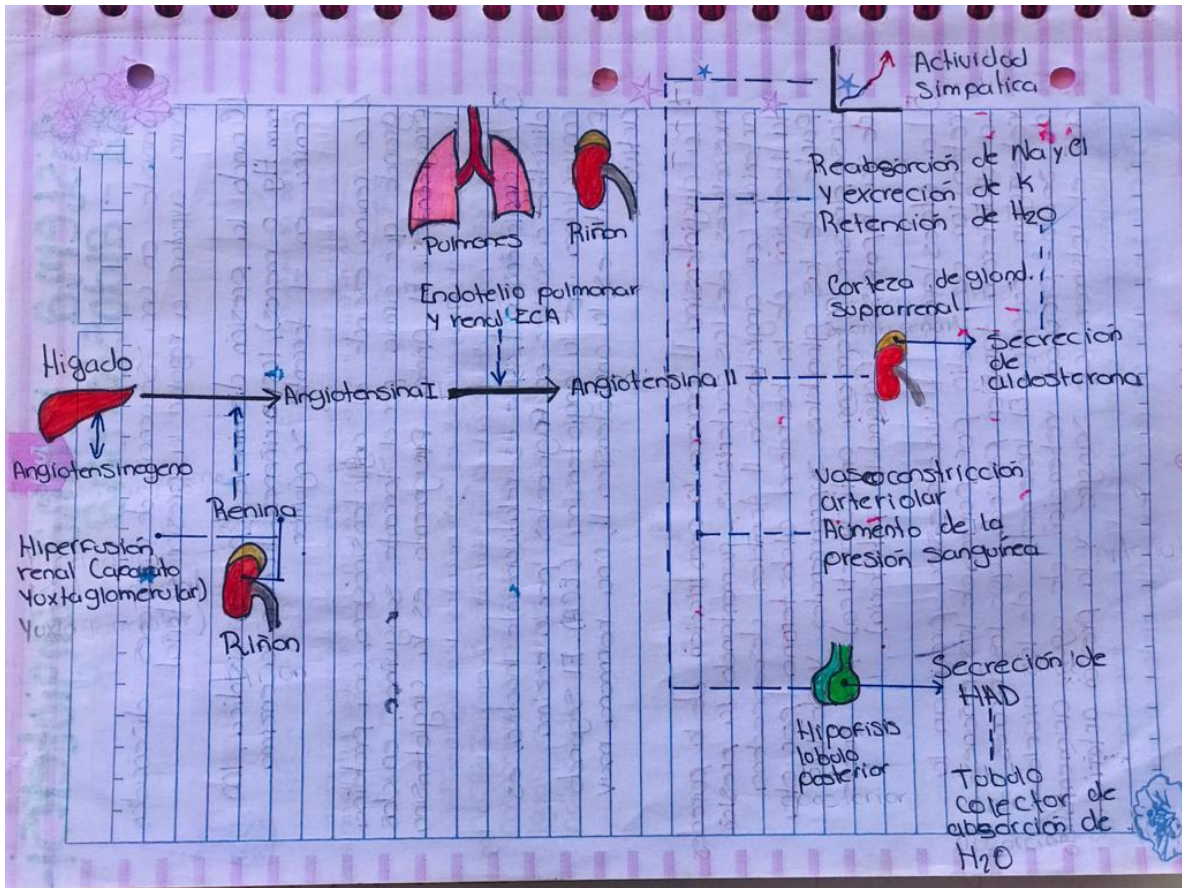 Actividad
simpatica
Reabsorción de Na y Cl
y excreción de K
Retención de H2O
Pulmones
Riñon
Endotelio pulmonar
y renal ECA
Corteza de gland.
suprarrenal
Secreción
de
aldosterona
Higado
Angiotensina I
Angiotensina II
Angiotensinogeno
Renina
Hiperfusión
renal (aparato
yuxtaglomerular)
Riñon
vasoconstricción
arteriolar
Aumento de la
presión sanguínea
Secreción de
HAD
Hipofisis
lobulo
posterior
Tubulo
colector de
absorción de
H2O